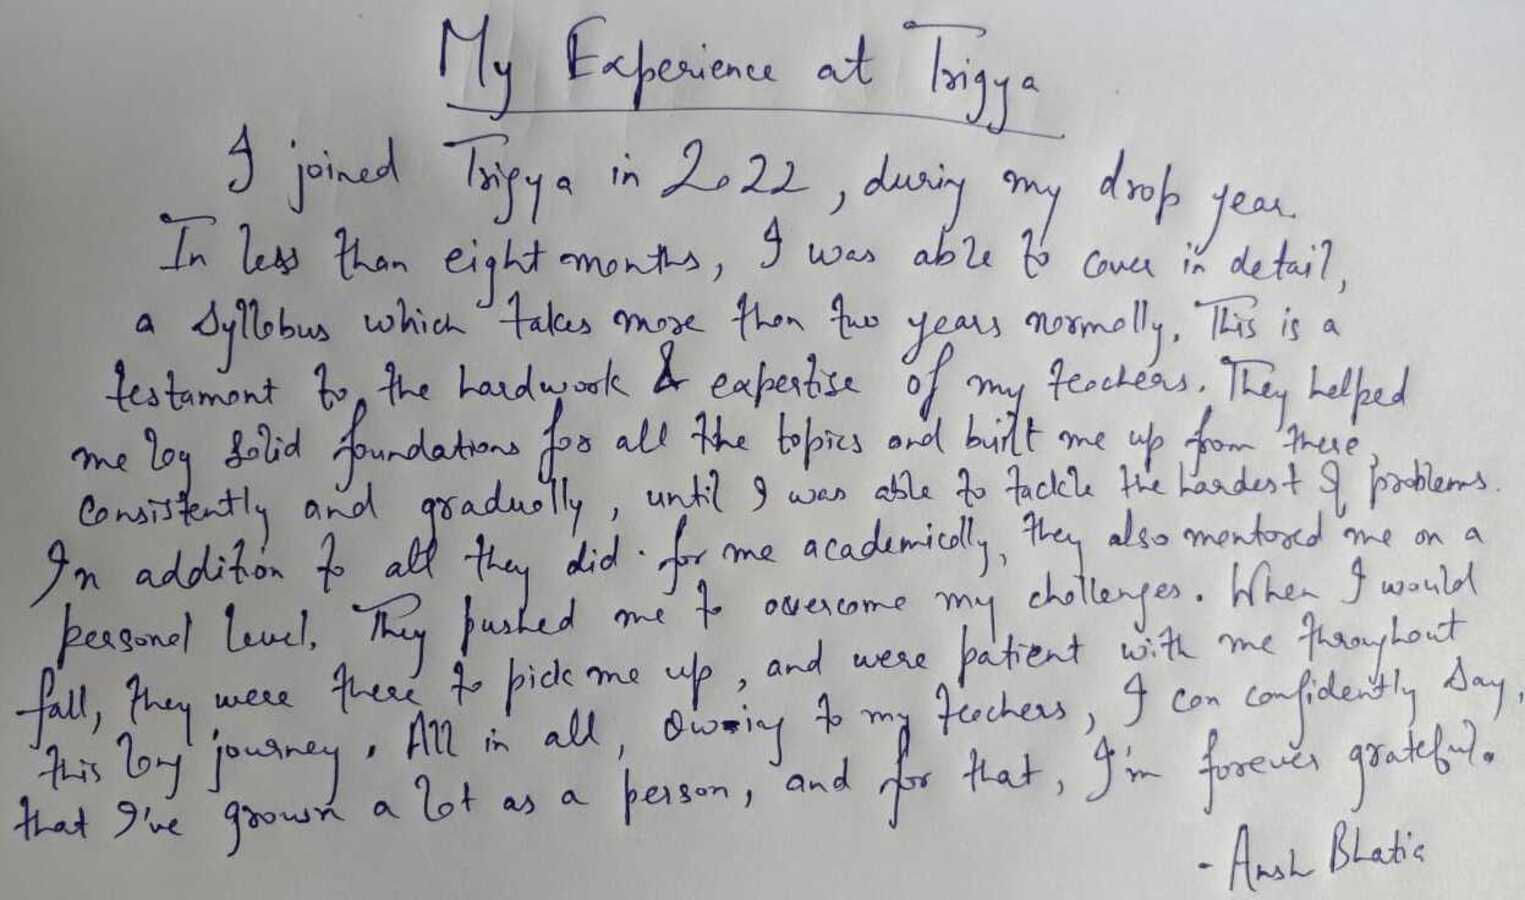 My Experience at Trigya
I joined Trigya in 2022, during my drop year.
In less than eight months, I was able to cover in detail,
a syllabus which takes more than two years normally. This is a
testament to the hardwork & expertise of my teachers. They helped
me lay solid foundations for all the topics and built me up from there,
consistently and gradually, until I was able to tackle the hardest of problems.
In addition to all they did for me academically, they also mentored me on a
personal level. They pushed me to overcome my challenges. When I would
fall, they were there to pick me up, and were patient with me throughout
this long journey. All in all, owing to my teachers, I can confidently say,
that I've grown a lot as a person, and for that, I'm forever grateful.
- Ansh Bhatia